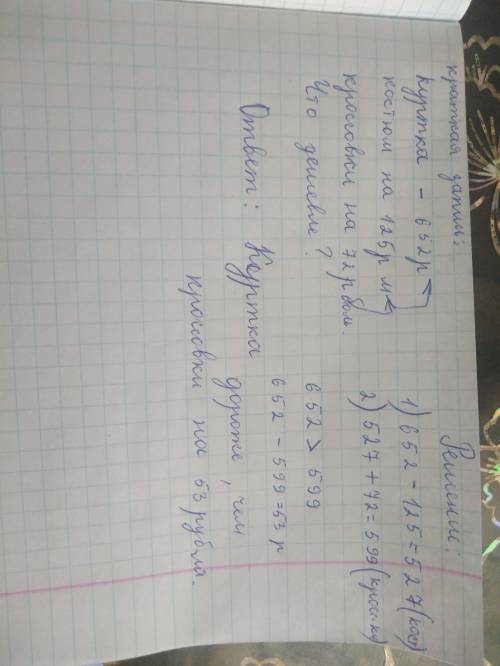 краткая запись:
куртка - 652р
костюм на 125р м
кроссовки на 72р бол.
Что дешевле?
Решение:
1) 652 - 125 = 527 (кос)
2) 527 + 72 = 599 (кросс-ки)
652 > 599
652 - 599 = 53 р
Ответ: Куртка
дороже, чем
кроссовки на 53 рубла.